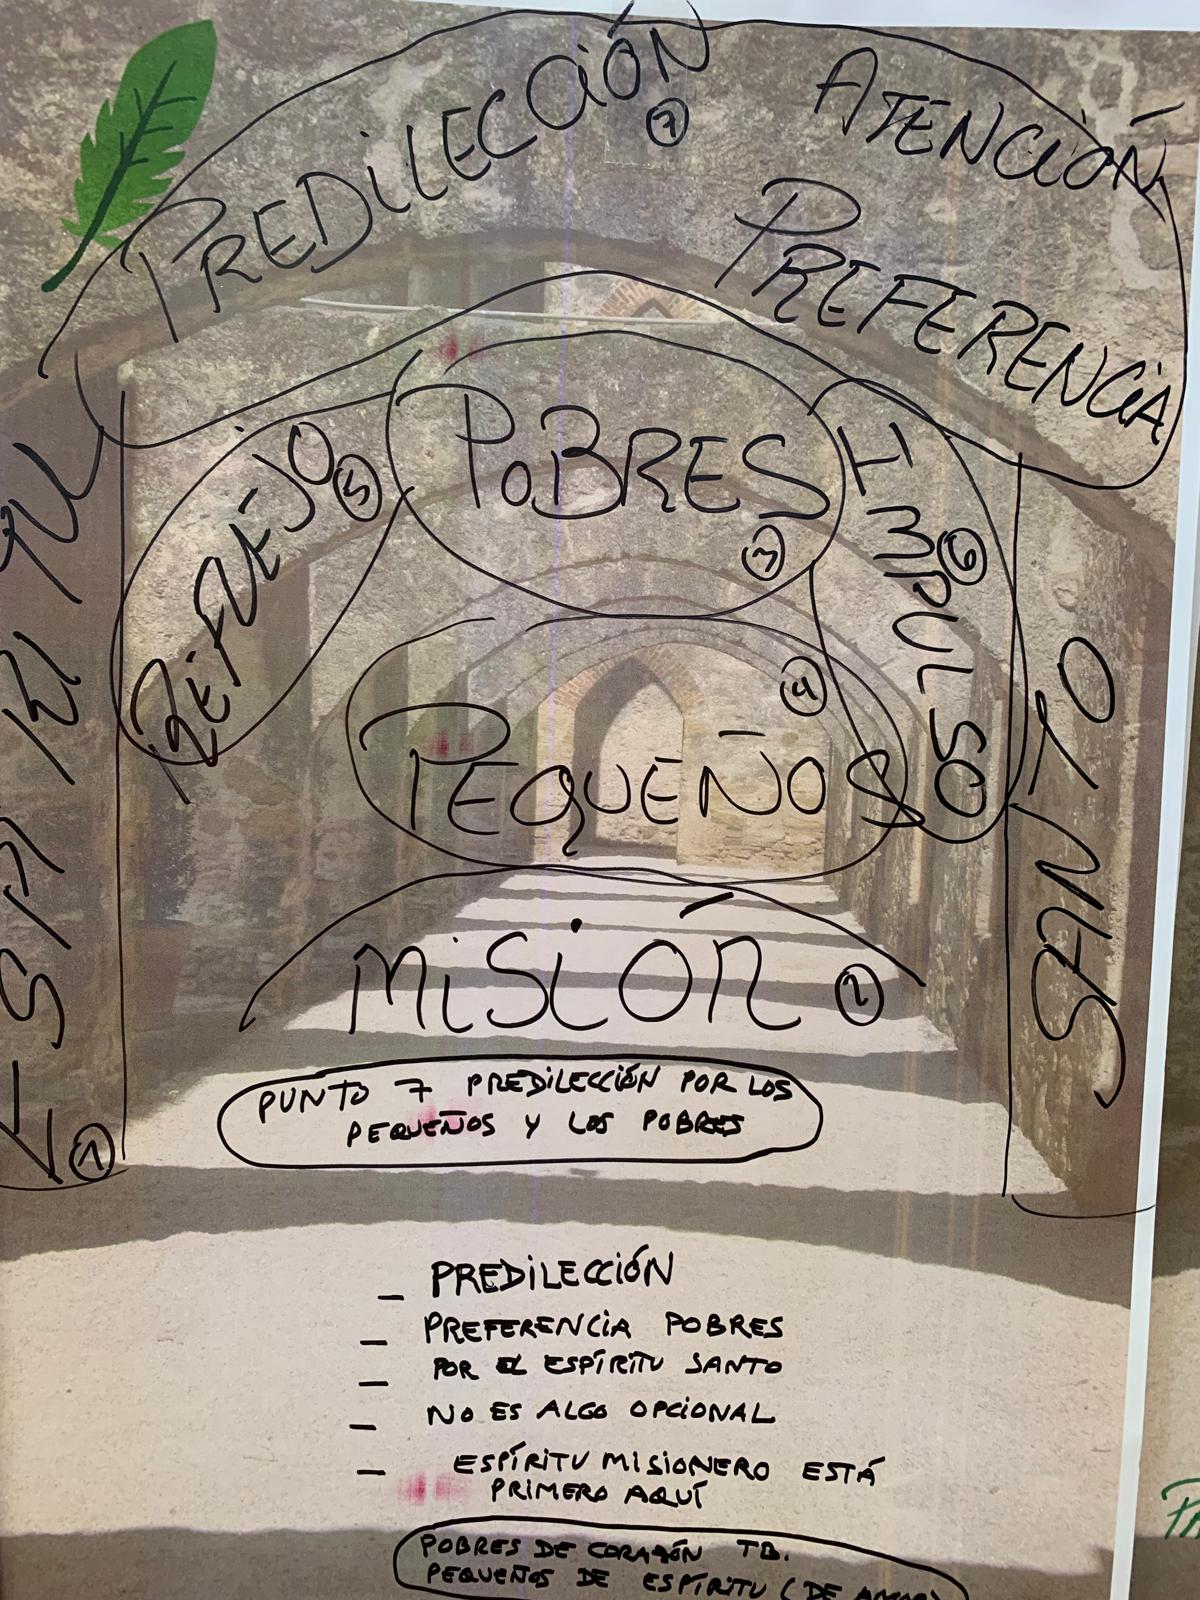 PREDILECCIÓN 7
ATENCIÓN
PREFERENCIA
REFLEJO 5
POBRES 3
IMPULSO 6
ESPIRITU 1
SANTO
PEQUEÑOS 4
MISIÓN 2
PUNTO 7 PREDILECCIÓN POR LOS
PEQUEÑOS Y LOS POBRES
_ PREDILECCIÓN
_ PREFERENCIA POBRES
_ POR EL ESPÍRITU SANTO
_ NO ES ALGO OPCIONAL
_ ESPÍRITU MISIONERO ESTÁ
PRIMERO AQUÍ
POBRES DE CORAZÓN TB.
PEQUEÑOS DE ESPÍRITU (DE